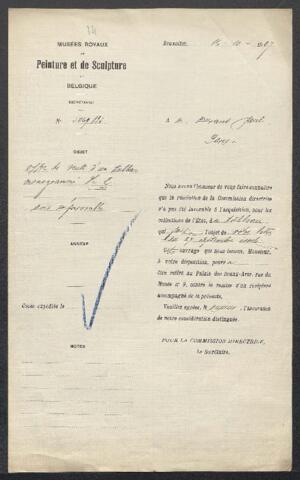 MUSÉES ROYAUX
DE
Peinture et de Sculpture
DE
BELGIQUE
SECRÉTARIAT
N°
OBJET
offre de vente d'un tableau
monogrammé
avis défavorable
ANNEXE
Copie expédiée le
NOTES
Bruxelles, 190
A M.
Nous avons l'honneur de vous faire connaître
que la résolution de la Commission directrice
n'a pas été favorable à l'acquisition, pour les
collections de l'État, du tableau
qui fait l'objet de votre lettre
du 27 septembre
Cet ouvrage que nous tenons, Monsieur,
à votre disposition, pourra
être retiré au Palais des Beaux-Arts, rue du
Musée n° 9, contre la remise d'un récépissé
accompagné de la présente.
Veuillez agréer, M onsieur, l'assurance
de notre considération distinguée.
POUR LA COMMISSION DIRECTRICE,
Le Secrétaire,